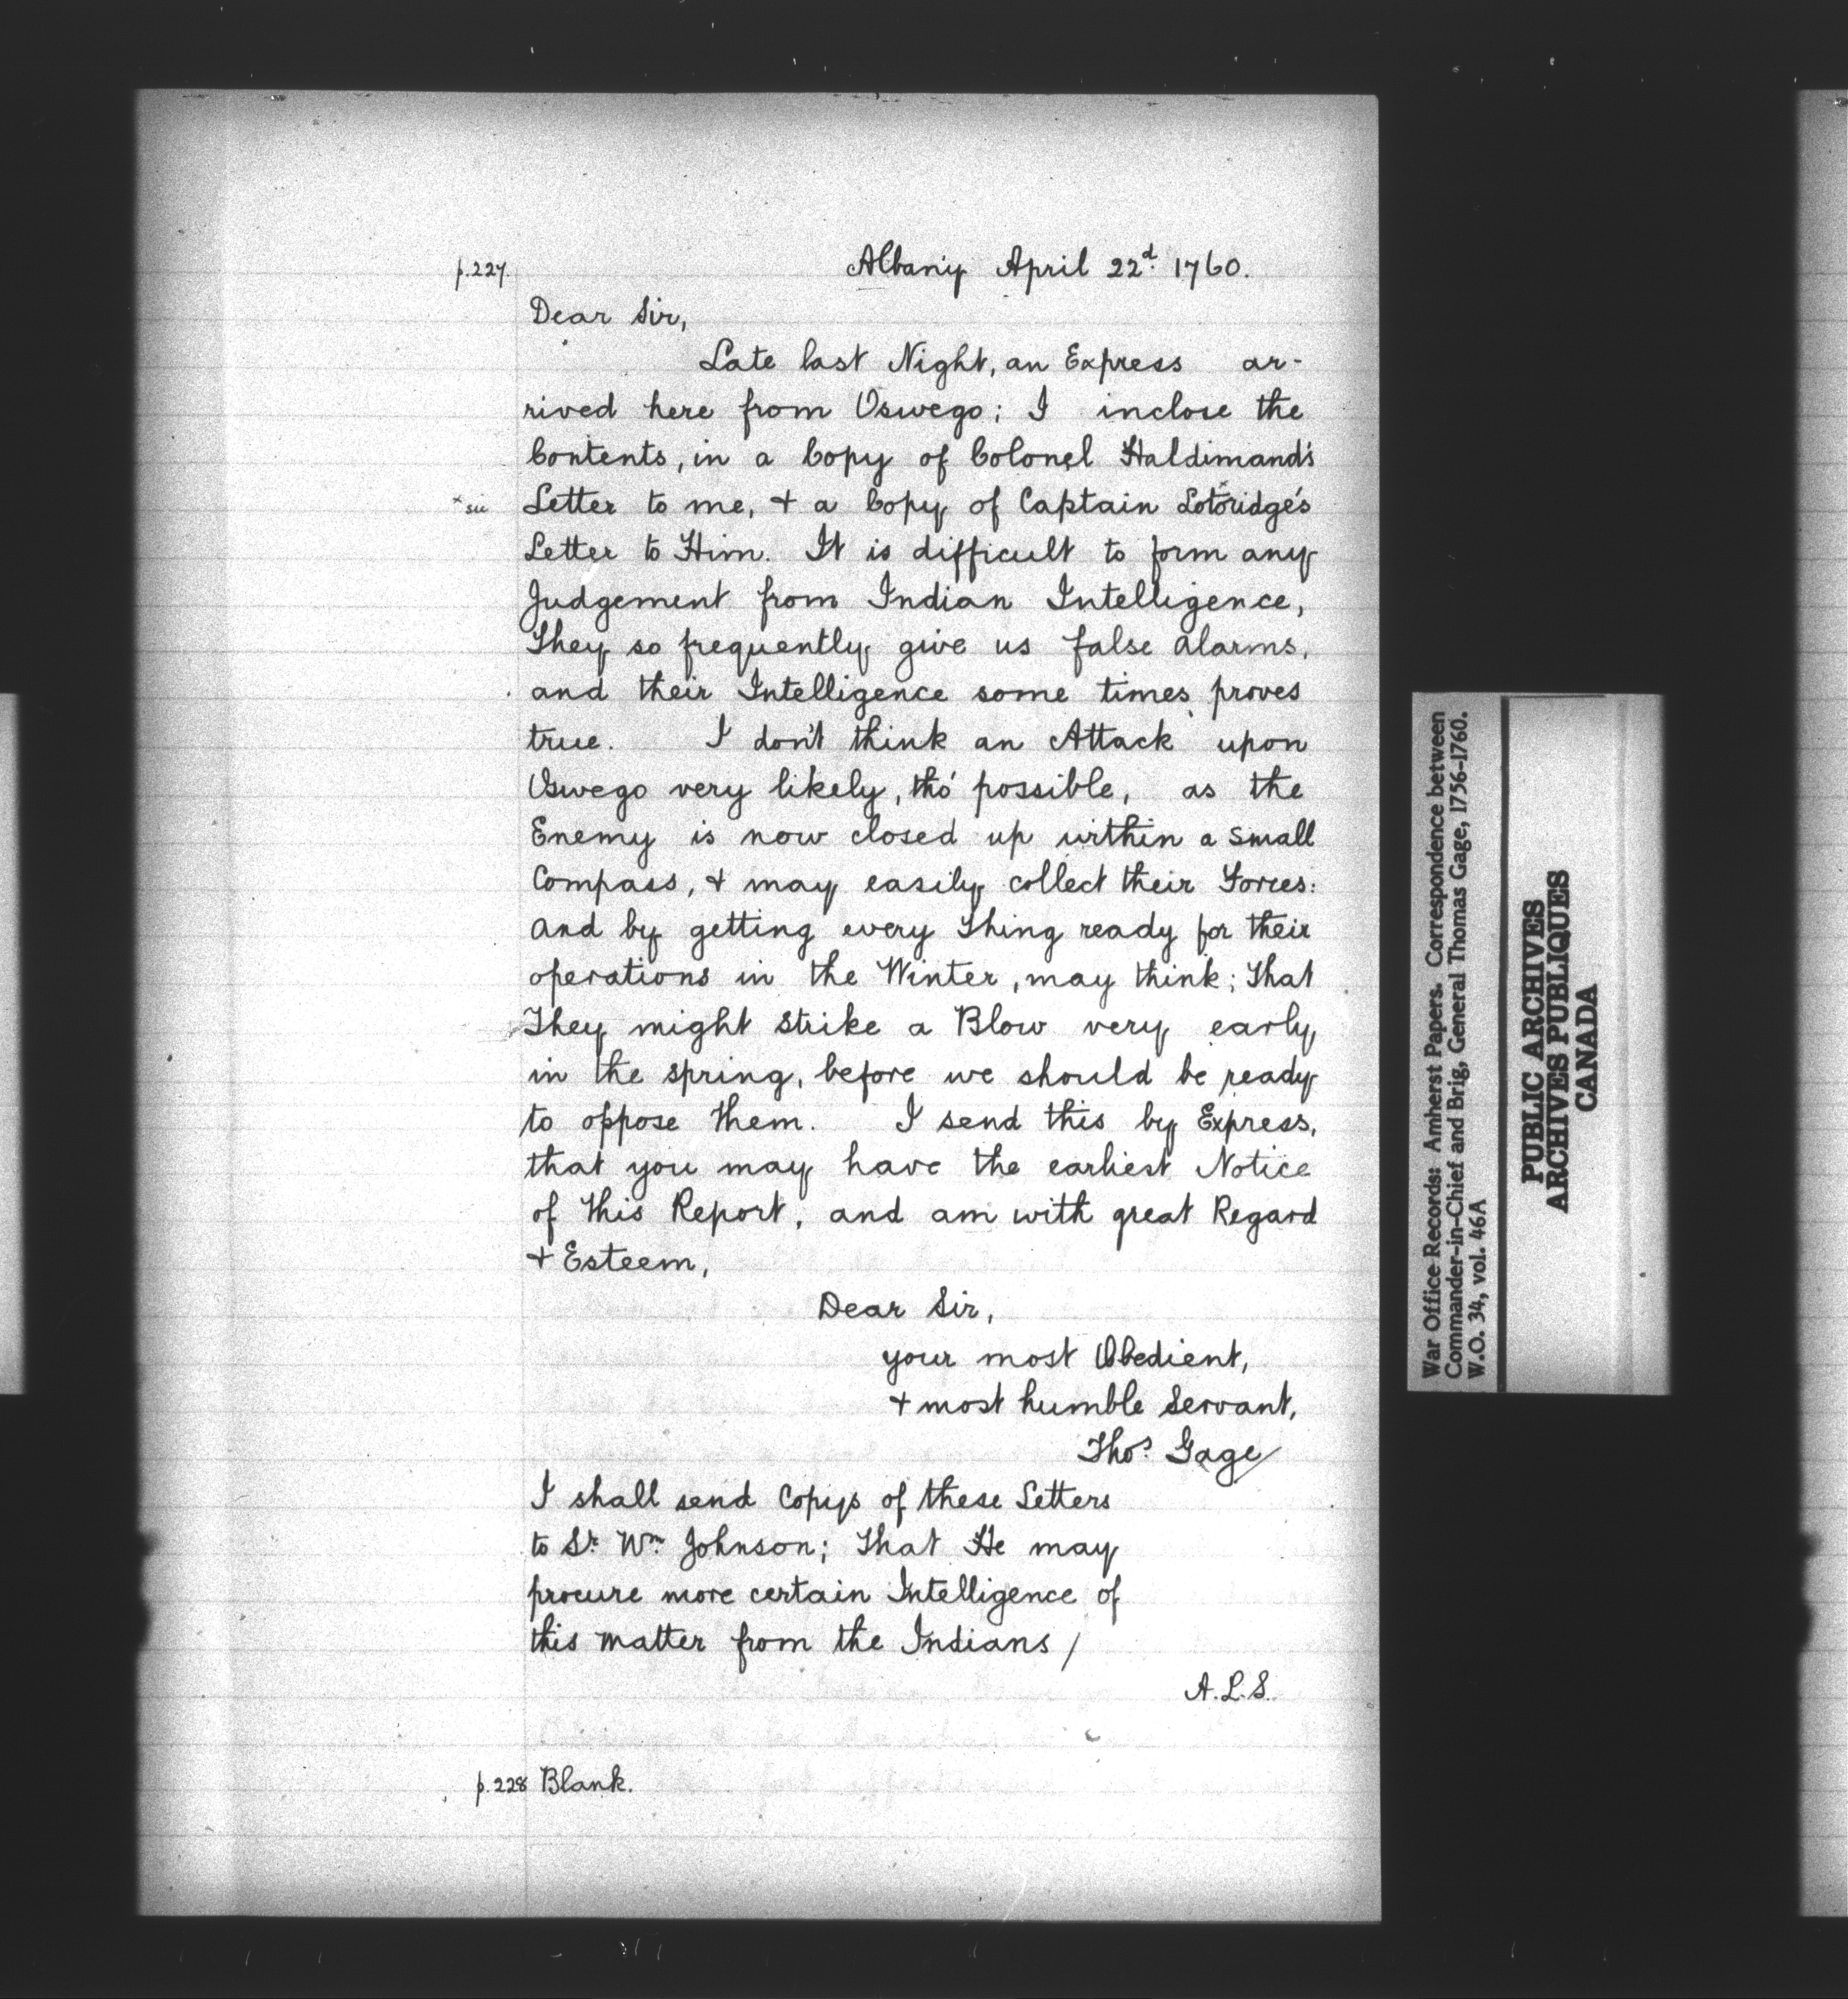 p.227.
Albany April 22d. 1760.
Dear Sir,
Late last Night, an Express ar-
rived here from Oswego; I inclose the
Contents, in a Copy of Colonel Haldimand's
*sic Letter to me, + a Copy of Captain Lotoridge's*
Letter to Him. It is difficult to form any
Judgement from Indian Intelligence,
They so frequently give us false Alarms,
and their Intelligence some times proves
true. I don't think an Attack upon
Oswego very likely, tho' possible, as the
Enemy is now closed up within a Small
Compass, + may easily collect their Forces:
and by getting every Thing ready for their
operations in the Winter, may think; that
They might Strike a Blow very early
in the spring, before we should be ready
to oppose them. I send this by Express,
that you may have the earliest Notice
of this Report, and am with great Regard
+ Esteem,
Dear Sir,
your most Obedient,
+ most humble Servant,
Thos. Gage/
I shall send Copys of these Letters
to Sr. Wm. Johnson; that He may
procure more certain Intelligence of
this matter from the Indians/
A.L.S.
p.228 Blank.
War Office Records: Amherst Papers. Correspondence between
Commander-in-Chief and Brig, General Thomas Gage, 1756-1760.
W.O. 34, vol. 46A
PUBLIC ARCHIVES
ARCHIVES PUBLIQUES
CANADA